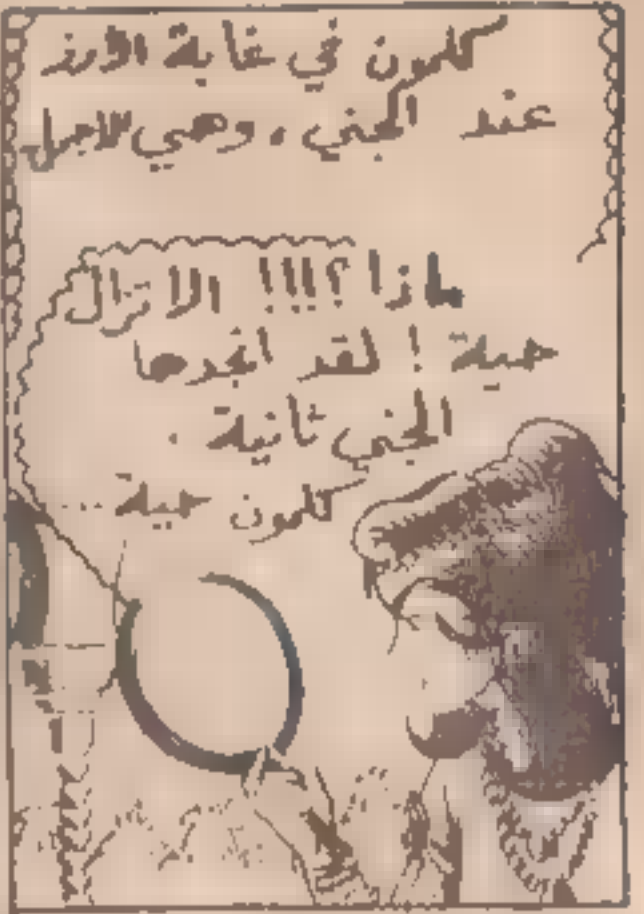 كلمون في غابة الأرز
عند الجني، وهي للاجل
ماذا؟!!! الا تزال
حية! لقد انجدها
الجني ثانية.
كلمون حية...